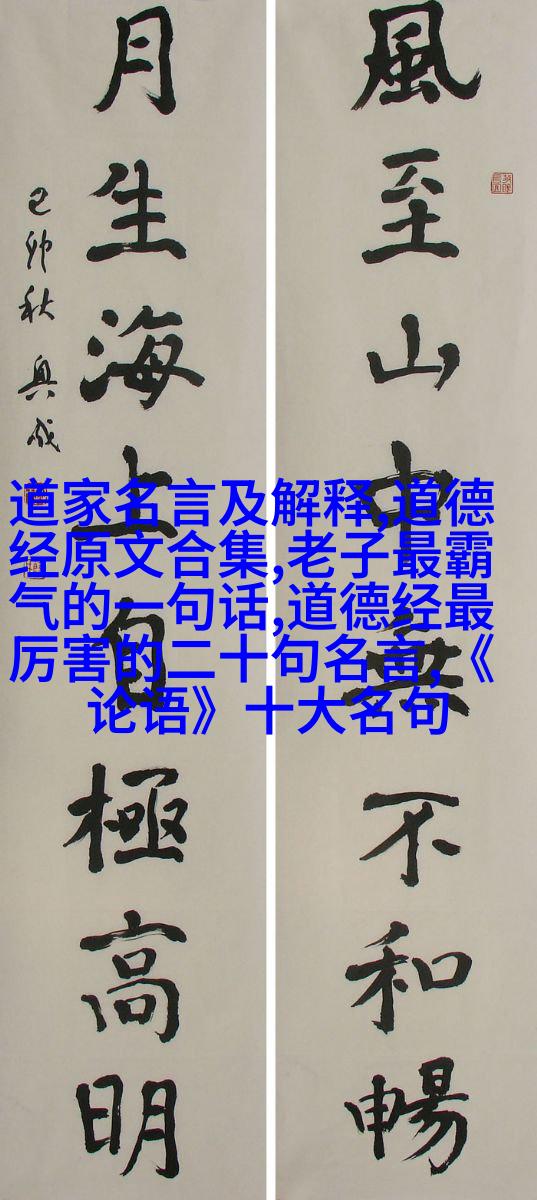 風至山中無不和暢
月生海上自極高明
己卯秋
道家名言及解释,道德
经原文合集,老子最霸
气的一句话,道德经最
厉害的二十句名言,《
论语》十大名句